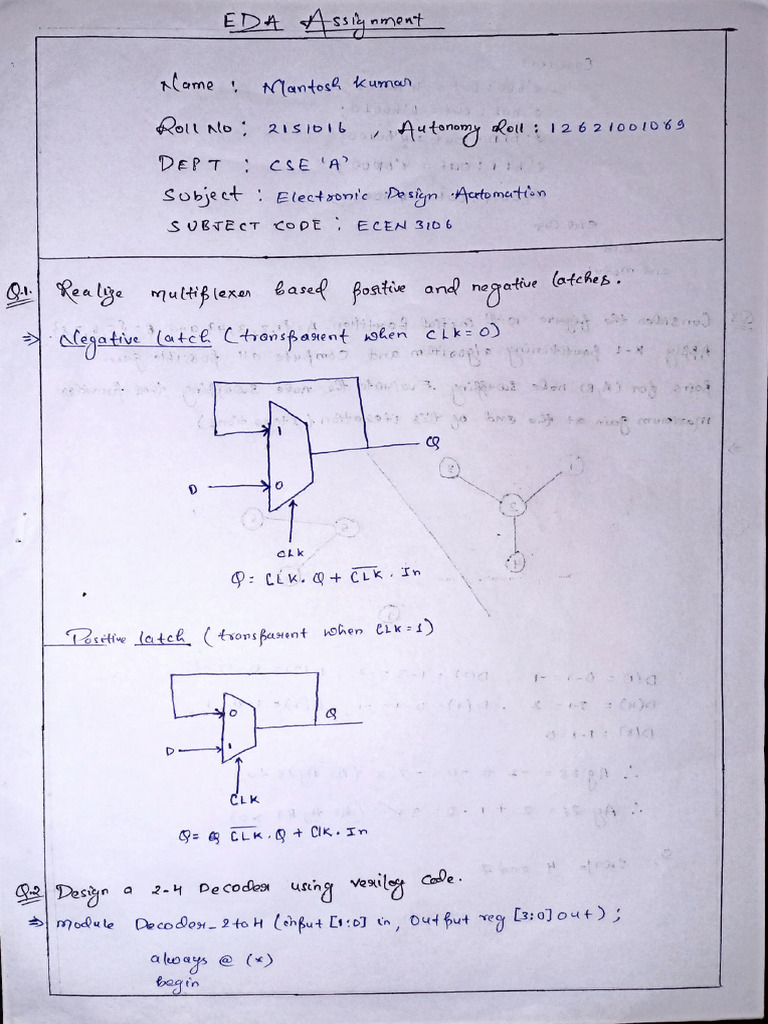 EDA Assignment
Name : Mantosh Kumar
Roll No : 2151016 , Autonomy Roll : 12621001069
DEPT : CSE 'A'
Subject : Electronic Design Automation
SUBJECT CODE : ECEN 3106
Q.1. Realize multiplexer based positive and negative latches.
⇒ Negative latch (transparent when CLK=0)
1
Q
D
0
CLK
Q = CLK. Q + \overline{CLK}. In
Positive latch (transparent when CLK=1)
0
Q
D
1
CLK
Q = \overline{CLK}. Q + Clk. In
Q.2 Design a 2-4 Decoder using verilog code.
⇒ module Decoder_2to4 (input [1:0] in, Output reg [3:0] out) ;
always @ (*)
begin